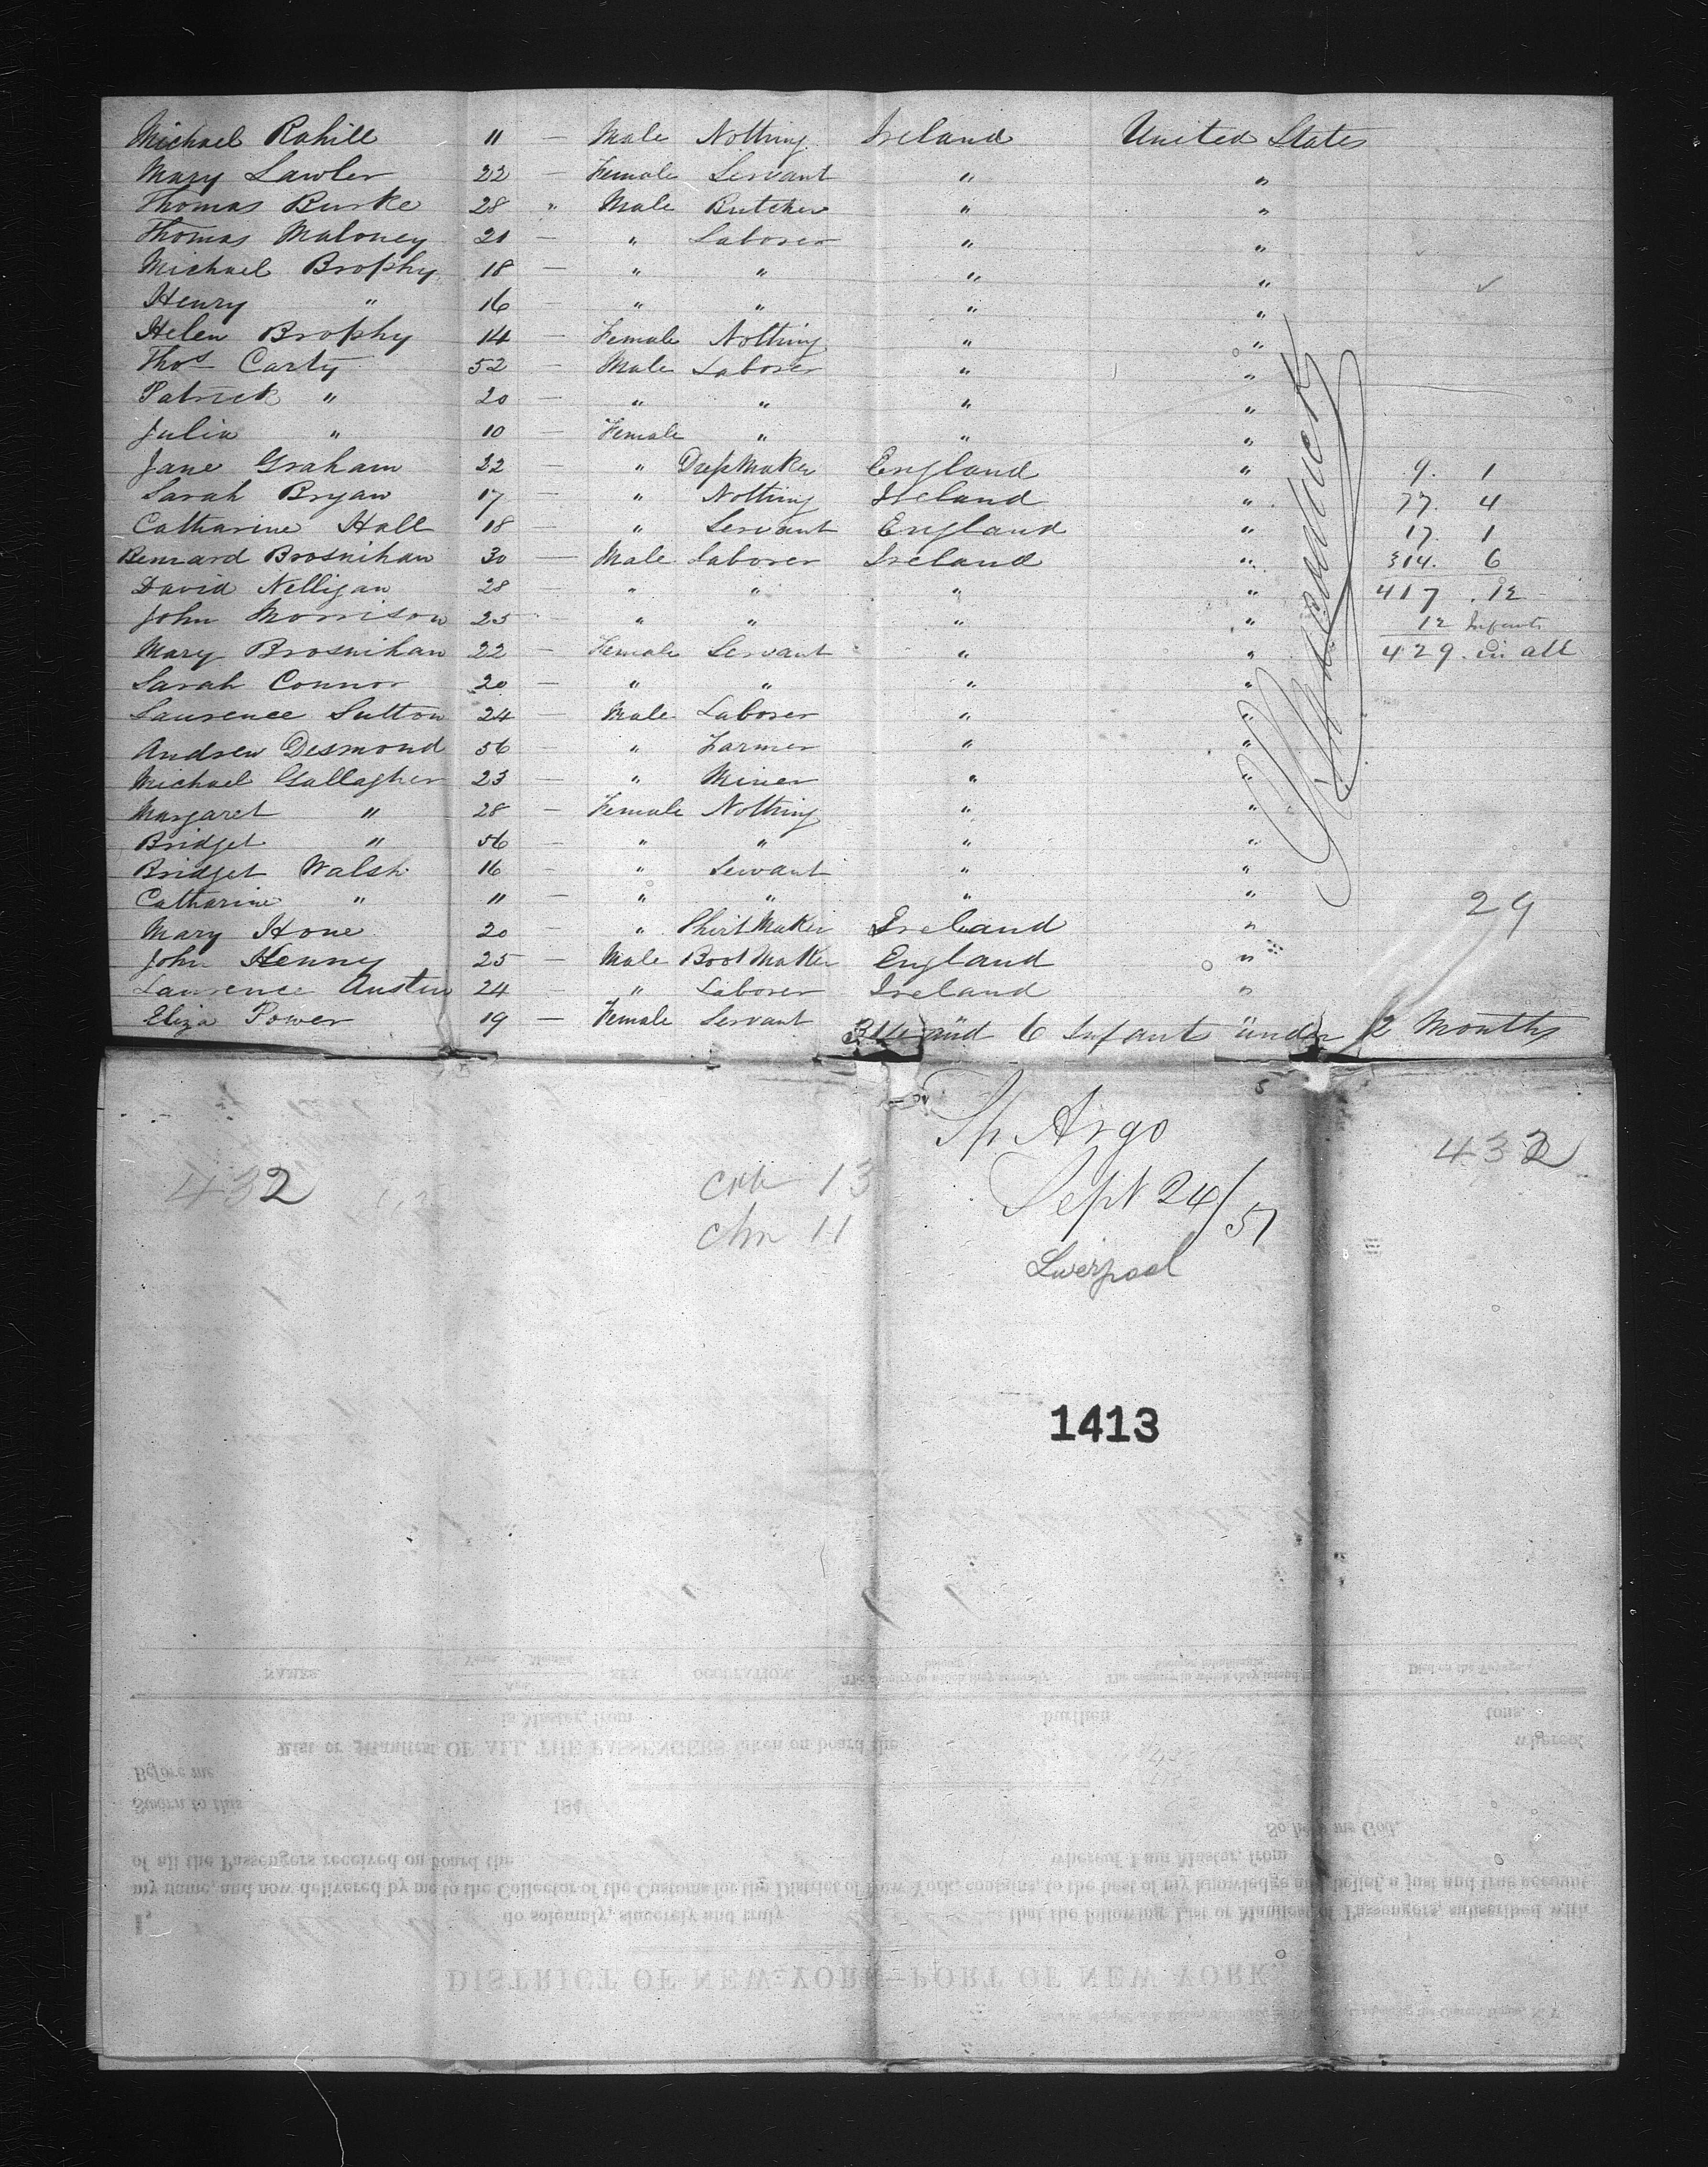 Michael Rahill 11 — Male Nothing Ireland United States
Mary Lawler 22 — Female Servant " "
Thomas Burke 28 " Male Butcher " "
Thomas Maloney 20 — " Laborer " "
Michael Brophy 18 — " " " "
Henry " 16 — " " " "
Helen Brophy 14 — Female Nothing " "
Thos Carty 52 — Male Laborer " "
Patrick " 20 — " " " "
Julia " 10 — Female " " "
Jane Graham 22 — " DressMaker England " 9. 1
Sarah Bryan 17 — " Nothing Ireland " 77. 4
Catharine Hall 18 — " Servant England " 17. 1
Bennard Brosnihan 30 — Male Laborer Ireland " 314. 6
David Nelligan 28 — " " " " 417 . 12
John Morrison 25 — " " " " 12 Infants
Mary Brosnihan 22 — Female Servant " " 429. in all
Sarah Connor 20 — " " " "
Laurence Sutton 24 — Male Laborer " "
Andrew Desmond 56 — " Farmer " "
Michael Gallagher 23 — " Miner " "
Margaret " 28 — Female Nothing " "
Bridget " 56 — " " " "
Bridget Walsh 16 — " Servant " "
Catharine " 11 — " " " "
Mary Hone 20 — " Shirt Maker Ireland " 29
John Henney 25 — Male Boot Maker England "
Laurence Austin 24 — " Laborer Ireland "
Eliza Power 19 — Female Servant
314 and 6 Infants under 12 Months
Sp Argo
432 13 Sept 24/51 432
chn 11
Liverpool
1413
NAMES. Years. Months. Age. SEX. OCCUPATION. The country to which they severally belong. The country in which they intend to become inhabitants. Died on the Voyage.
is Master, from burthen tons.
List or Manifest OF ALL THE PASSENGERS taken on board the whereof
Before me
Sworn to this 184
So help me God.
of all the Passengers received on board the whereof I am Master, from
my name, and now delivered by me to the Collector of the Customs for the District of New York, contains, to the best of my knowledge and belief, a just and true account
I, do solemnly, sincerely and truly that the following List or Manifest of Passengers, subscribed with
DISTRICT OF NEW-YORK—PORT OF NEW YORK.